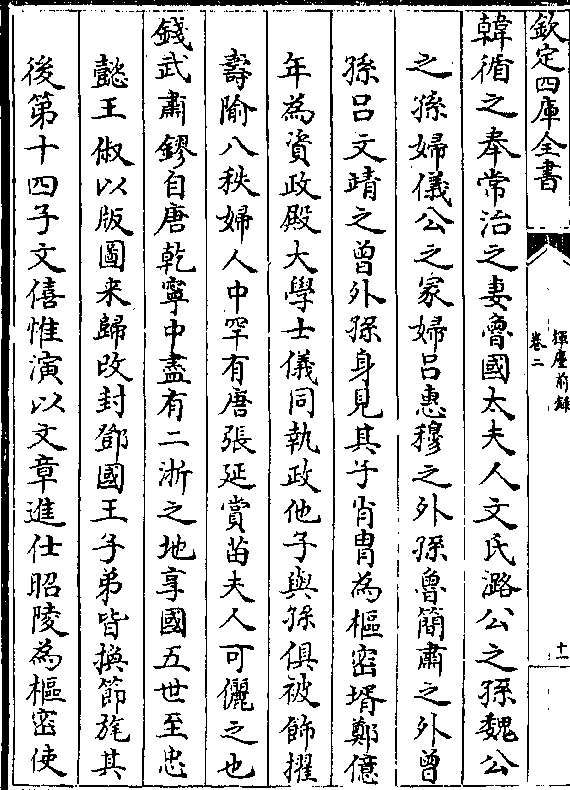 欽定四庫全書
揮麈前錄
卷二
十一
韓循之奉常治之妻魯國太夫人文氏潞公之孫魏公
之孫婦儀公之冢婦呂惠穆之外孫魯簡肅之外曾
孫呂文靖之曾外孫身見其子肖胄為樞密壻鄭億
年為資政殿大學士儀同執政他子與孫俱被飾擢
壽隃八秩婦人中罕有唐張延賞苗夫人可儷之也
錢武肅鏐自唐乾寧中盡有二浙之地享國五世至忠
懿王俶以版圖来歸改封鄧國王子弟皆換節旄其
後第十四子文僖惟演以文章進仕昭陵為樞密使